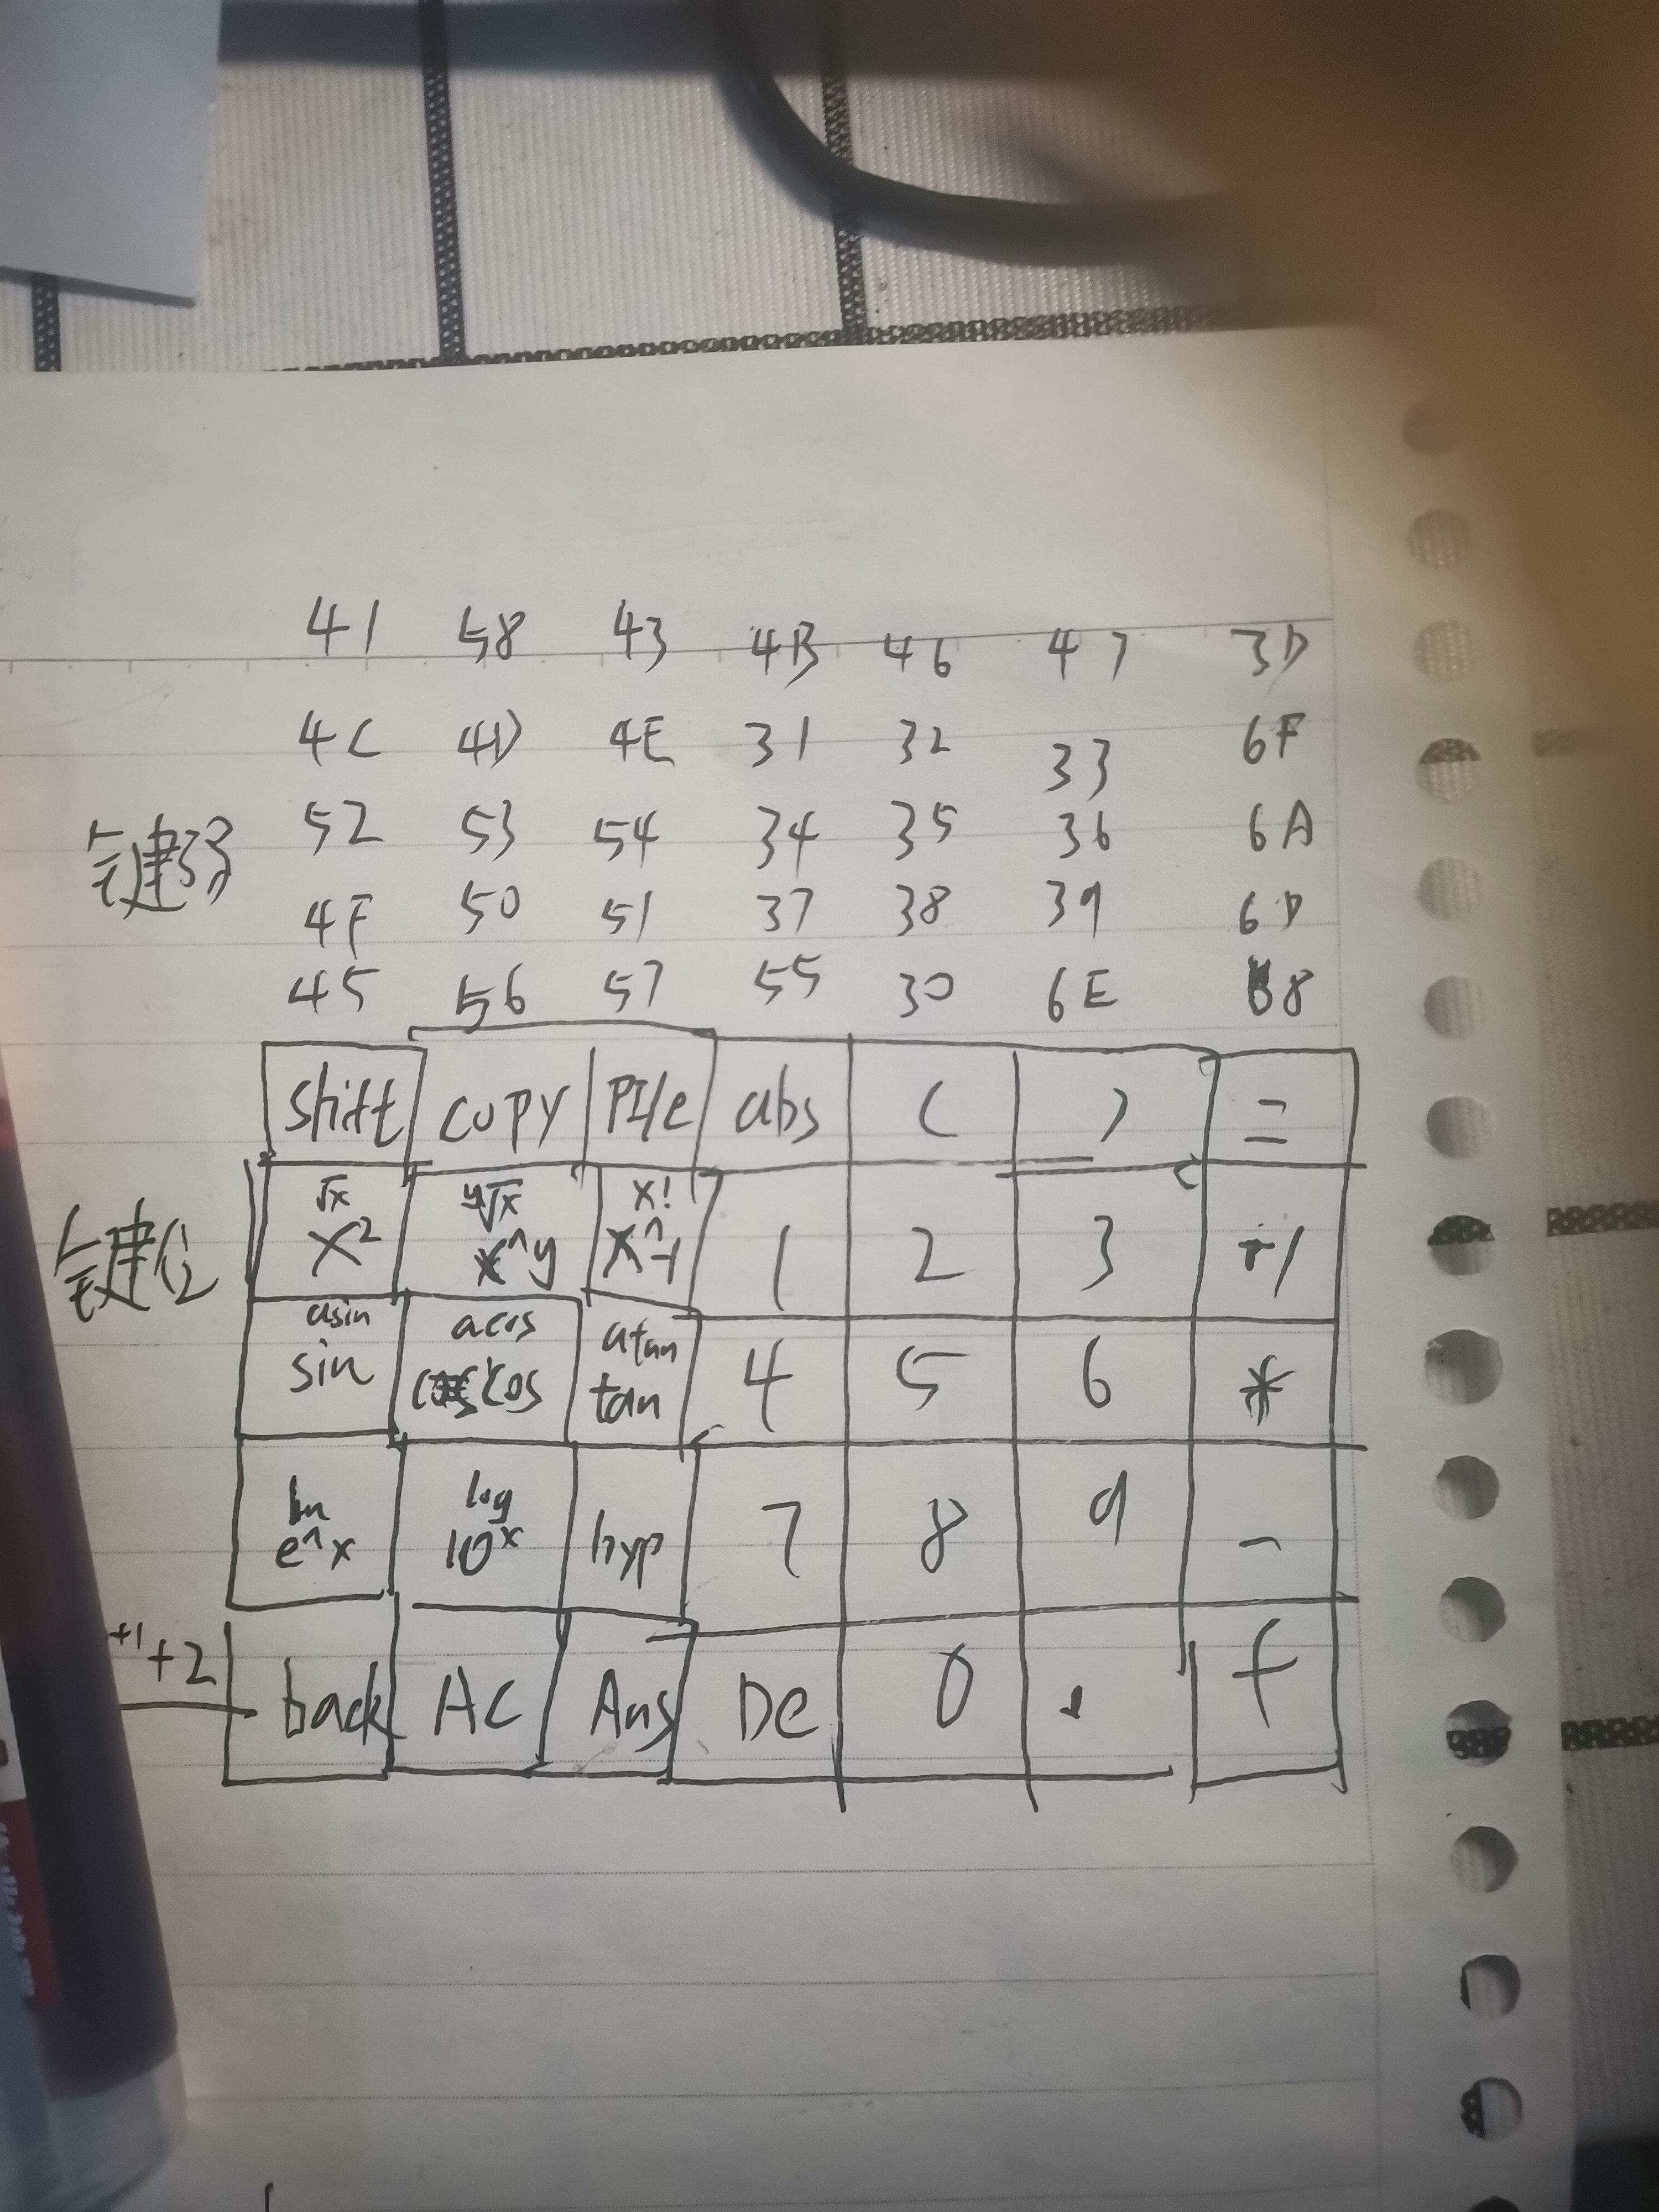 41 58 43 4B 46 47 3D
4C 4D 4E 31 32 33 6F
键码 52 53 54 34 35 36 6A
4F 50 51 37 38 39 6D
45 56 57 55 30 6E 8
shift copy PI/e abs ( ) =
√x y√x x!
键位 x² x^y x^-1 1 2 3 /
asin acos atan
sin cos tan 4 5 6 *
ln log
e^x 10^x hyp 7 8 9 -
+1 +2
back AC Ans De 0 . +